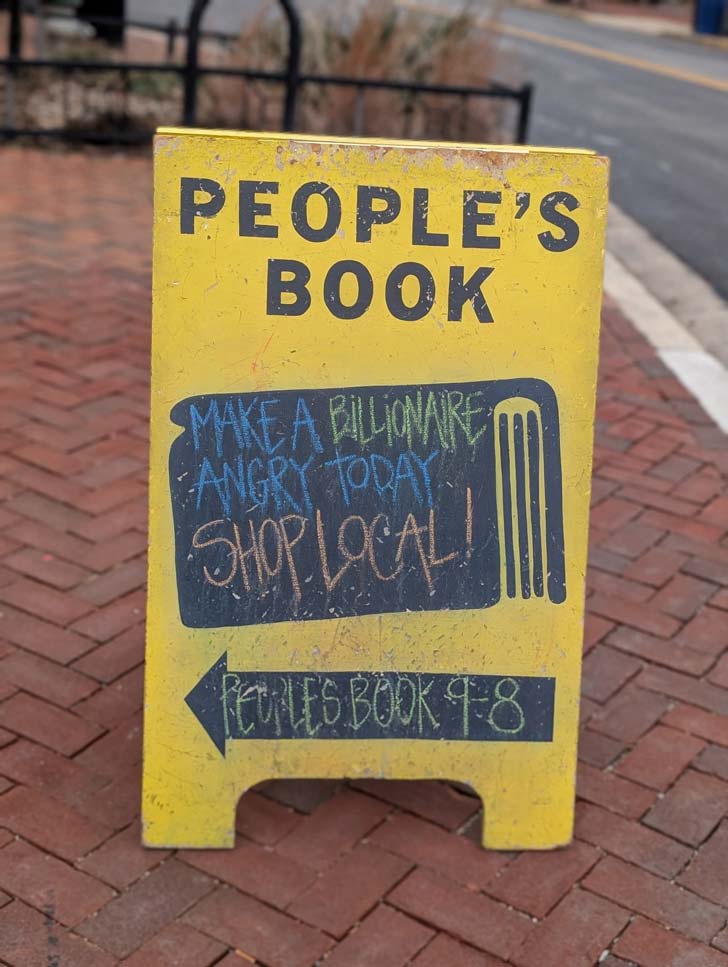 PEOPLE'S
BOOK
MAKE A BILLIONAIRE
ANGRY TODAY
SHOP LOCAL!
PEOPLES BOOK 9-8